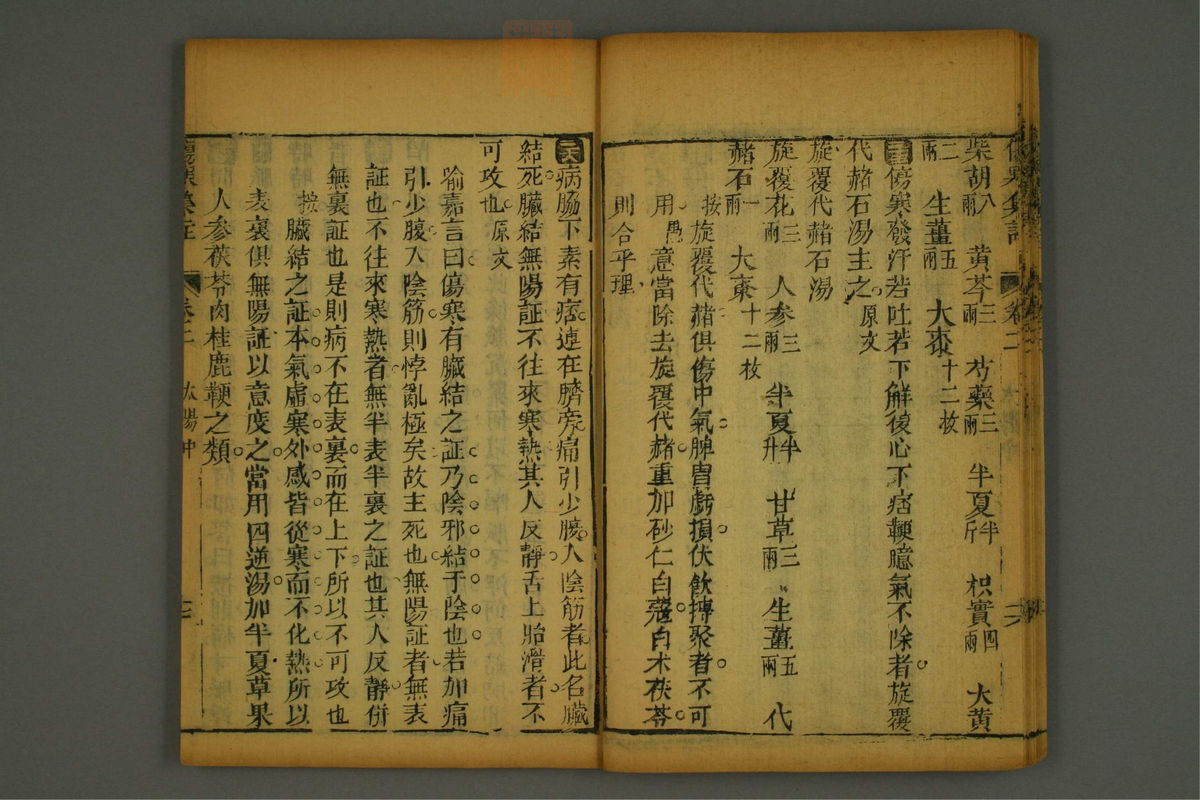 柴胡八兩 黃芩三兩 芍藥三兩 半夏半斤 枳實四兩 大黃
二兩 生薑五兩 大棗十二枚
傷寒發汗若吐若下解復心下痞鞕臆氣不除者旋覆
代赭石湯主之原文
旋覆代赭石湯
旋覆花三兩 人参三兩 半夏半升 甘草三兩 生薑五兩 代
赭石一兩 大棗十二枚
按旋覆代赭俱傷中氣脾胃虧損伏飲摶聚者不可
用愚意當除去旋覆代赭重加砂仁白蔻白术茯苓
則合乎理
病脇下素有痞連在臍旁痛引少腹入陰筋者此名臟
結死臟結無陽証不往來寒熱其人反靜舌上胎滑者不
可攻也原文
喻嘉言曰傷寒有臟結之証乃陰邪結于陰也若加痛
引少腹入陰筋則悖亂極矣故主死也無陽証者無表
証也不往來寒熱者無半表半裏之証也其人反靜併
無裏証也是則病不在表裏而在上下所以不可攻也
按臟結之証本氣虛寒外感皆從寒而不化熱所以
表裏俱無陽証以意度之當用四逆湯加半夏草果
人参茯苓肉桂鹿鞕之類
傷寒集註 卷二 太陽中